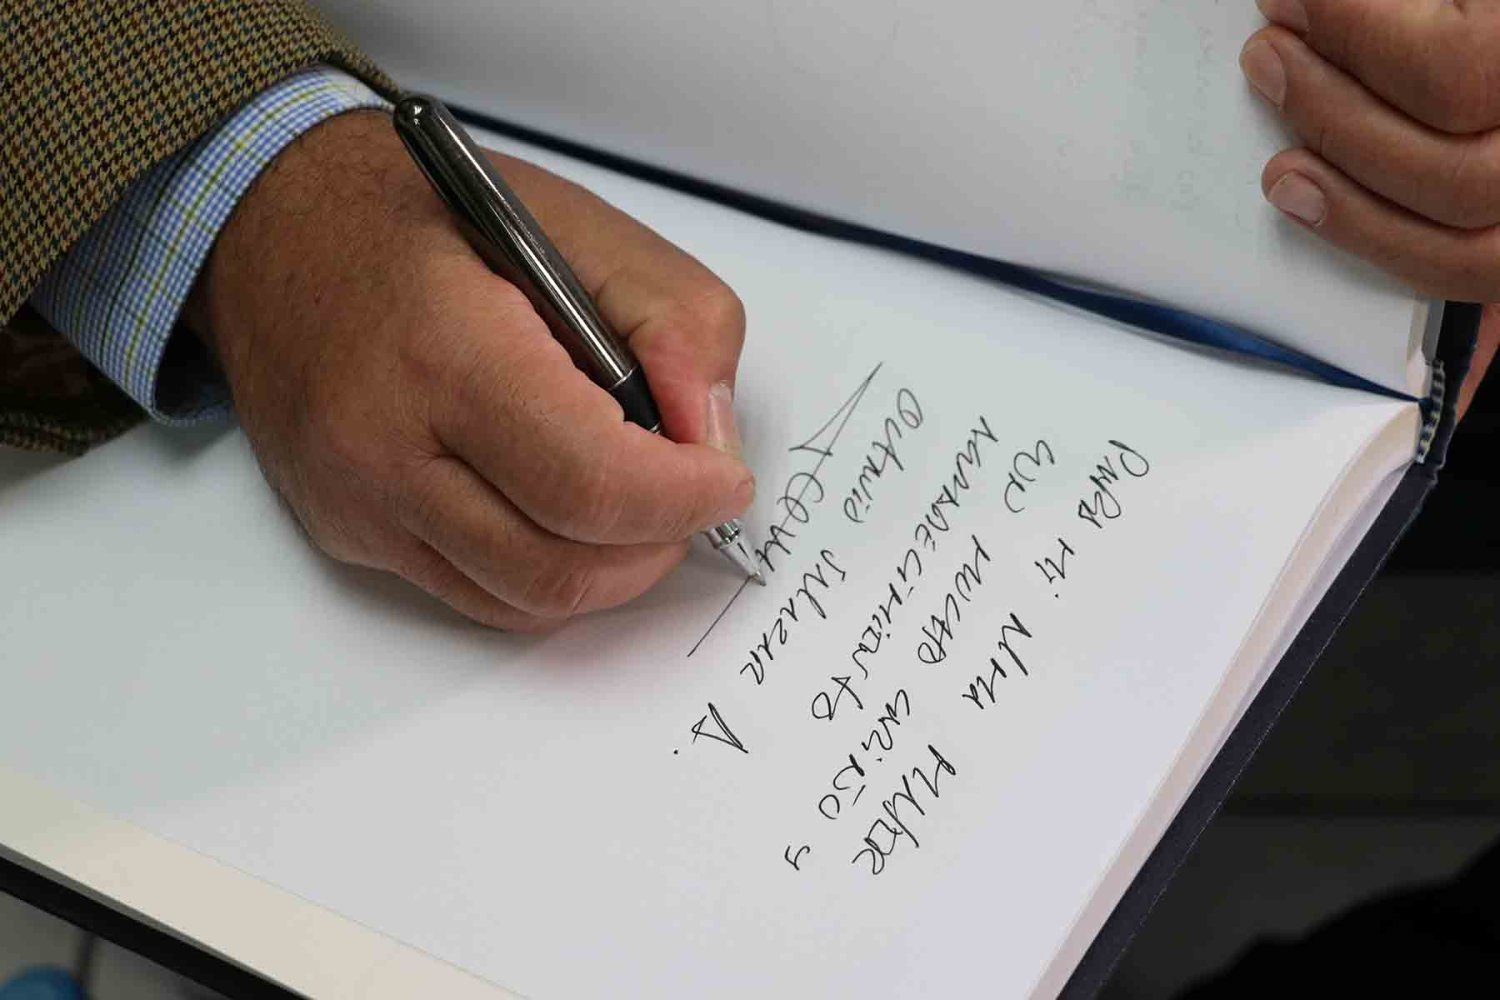 PARA MI ALMA MATER
CON MUCHO CARIÑO Y
AGRADECIMIENTO
OCTAVIO SALAZAR A.